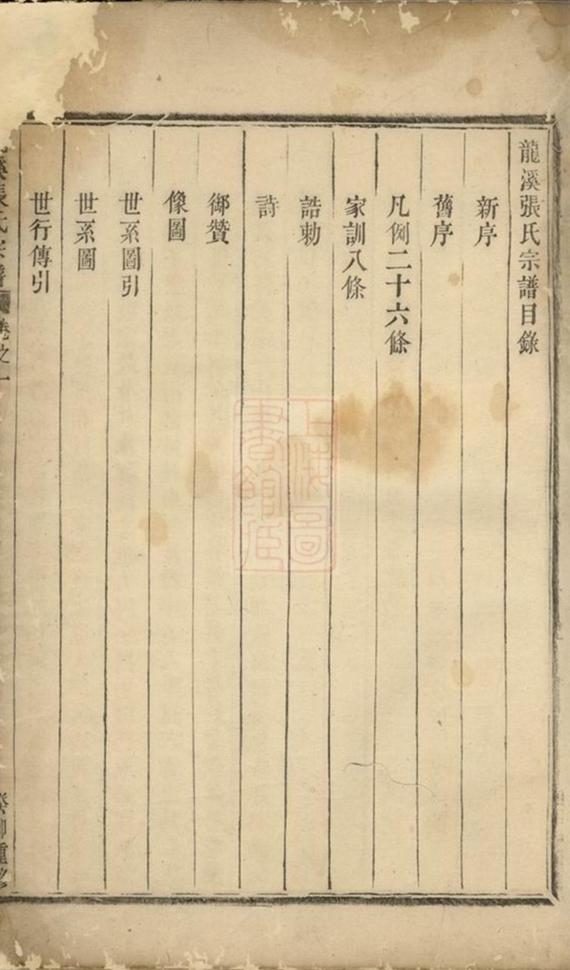 龍溪張氏宗譜目錄
新序
舊序
凡例二十六條
家訓八條
誥勅
詩
御贊
像圖
世系圖引
世系圖
世行傳引
溪張氏宗譜 卷之一
癸卯重修
上海圖書館藏